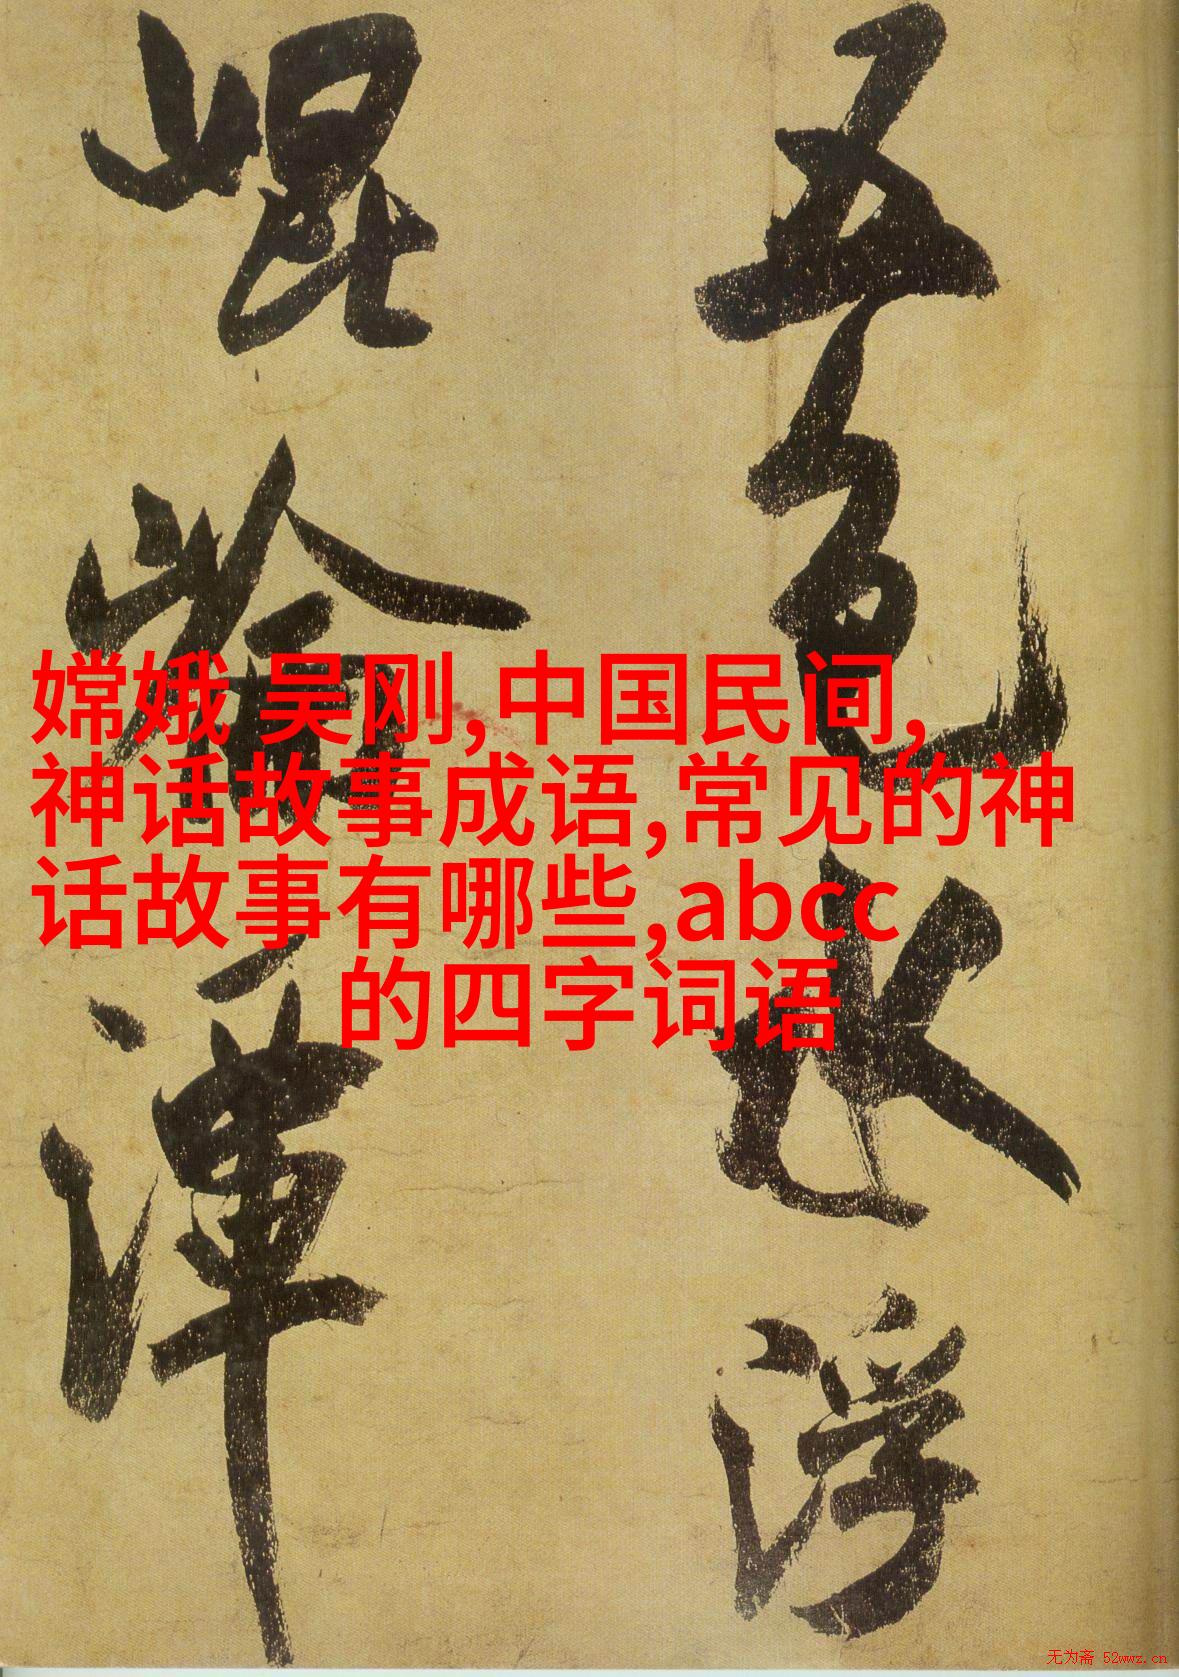 五色水浮
崐崘潭
嫦娥 吴刚,中国民间,
神话故事成语,常见的神
话故事有哪些,abcc
的四字词语
无为斋 52wwz.cn